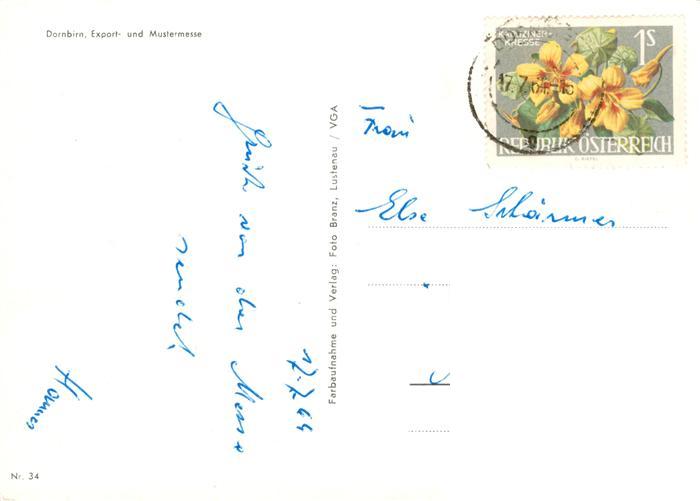 Dornbirn, Export- und Mustermesse
KAPUZINER-
KRESSE
1S
17.7.64-18
REPUBLIK ÖSTERREICH
17.7.64
Grüße von der Messe
sendet
Hannes
Farbaufnahme und Verlag: Foto Branz, Lustenau / VGA
Frau
Else Schärmer
Nr. 34